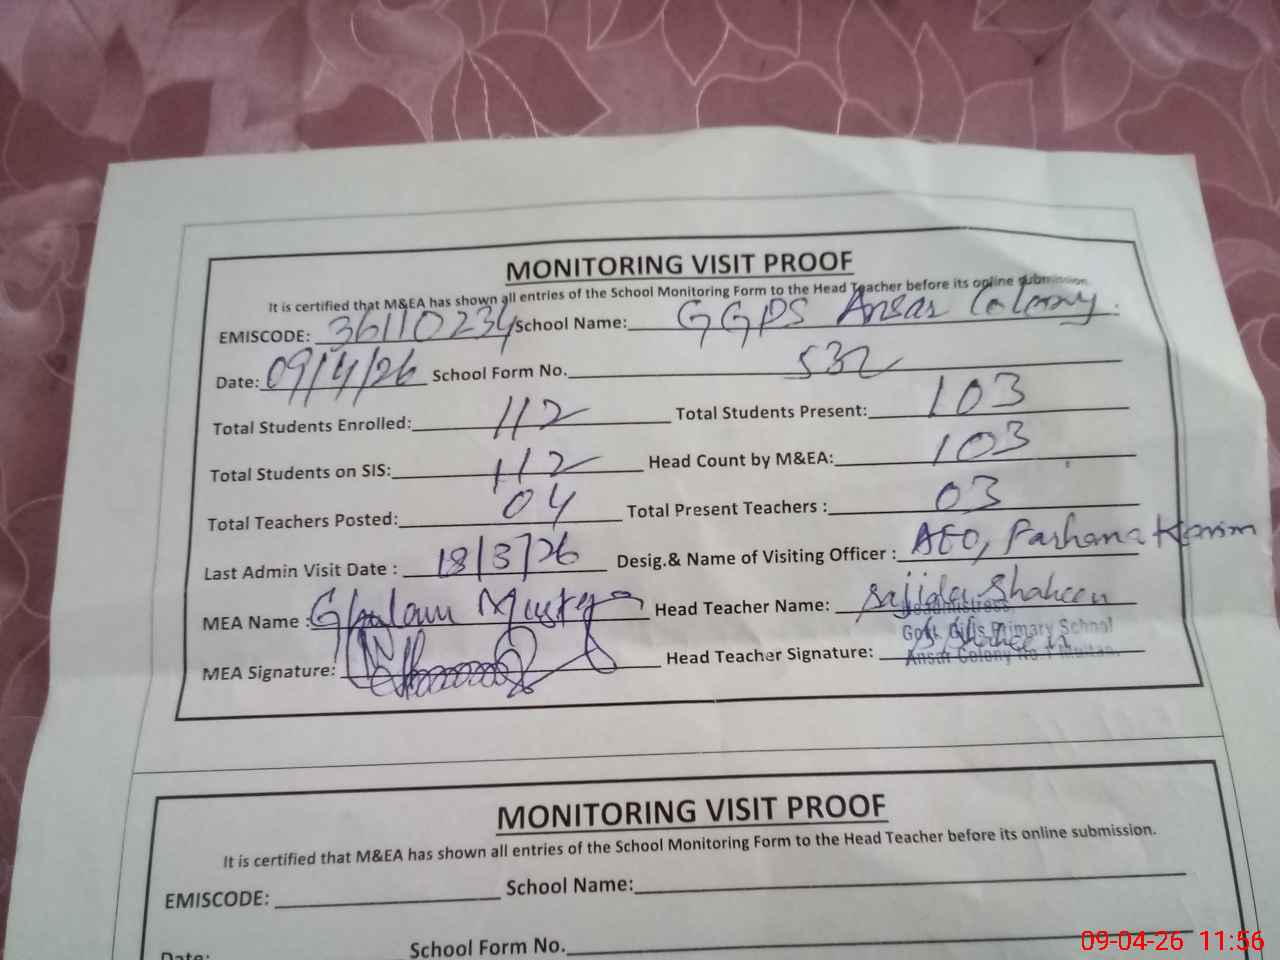 MONITORING VISIT PROOF
It is certified that M&EA has shown all entries of the School Monitoring Form to the Head Teacher before its online submission.
EMISCODE: 36110234 School Name: GGPS Ansar Colony.
Date: 09/4/26 School Form No. 532
Total Students Enrolled: 112 Total Students Present: 103
Total Students on SIS: 112 Head Count by M&EA: 103
Total Teachers Posted: 04 Total Present Teachers : 03
Last Admin Visit Date : 18/3/26 Desig.& Name of Visiting Officer : AEO, Farhana Karim
MEA Name : Ghulam Head Teacher Name: Sajida Shaheen
Headmistress
Govt. Girls Primary School
MEA Signature: Head Teacher Signature:
Ansar Colony No. 1 Multan.
MONITORING VISIT PROOF
It is certified that M&EA has shown all entries of the School Monitoring Form to the Head Teacher before its online submission.
EMISCODE: School Name:
Date: School Form No.
09-04-26 11:56